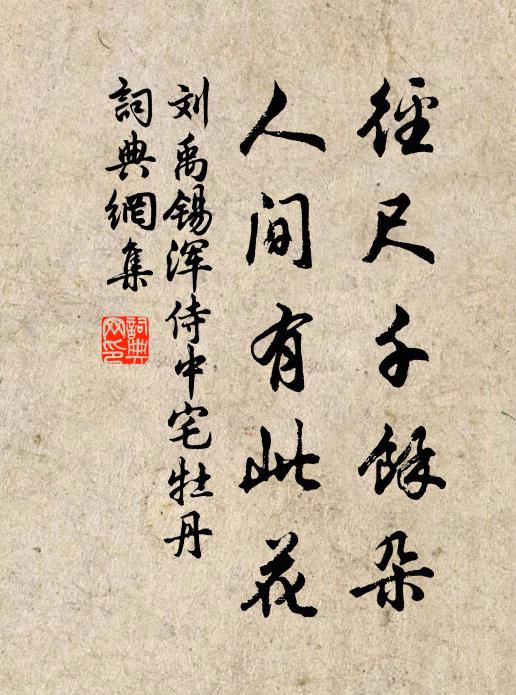 徑尺千餘朵
人間有此花
刘禹锡浑侍中宅牡丹
詞典網集
詞典
网印